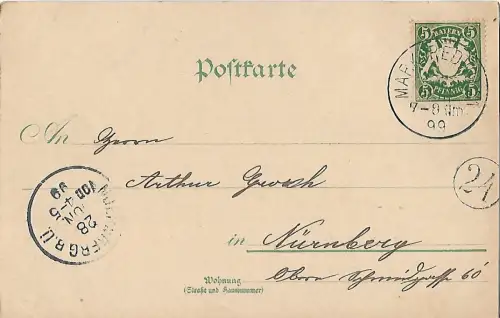 5 BAYERN 5
5 PFENNIG 5
7-8 Nm.
99
Postkarte
An Herrn
Arthur Grosch
24
in Nürnberg
Obere Schmiedgasse 60
Wohnung
(Straße und Hausnummer)
NÜRNBERG B.Ü.
28
JUN
VOR 4-5
99